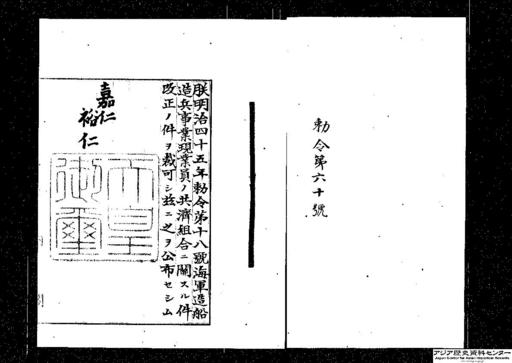 勅令第六十號
朕明治四十五年勅令第十八號海軍造船
造兵事業現業員ノ共濟組合ニ關スル件
改正ノ件ヲ裁可シ茲ニ之ヲ公布セシム
嘉仁
裕仁
天皇御璽
アジア歴史資料センター
Japan Center for Asian Historical Records